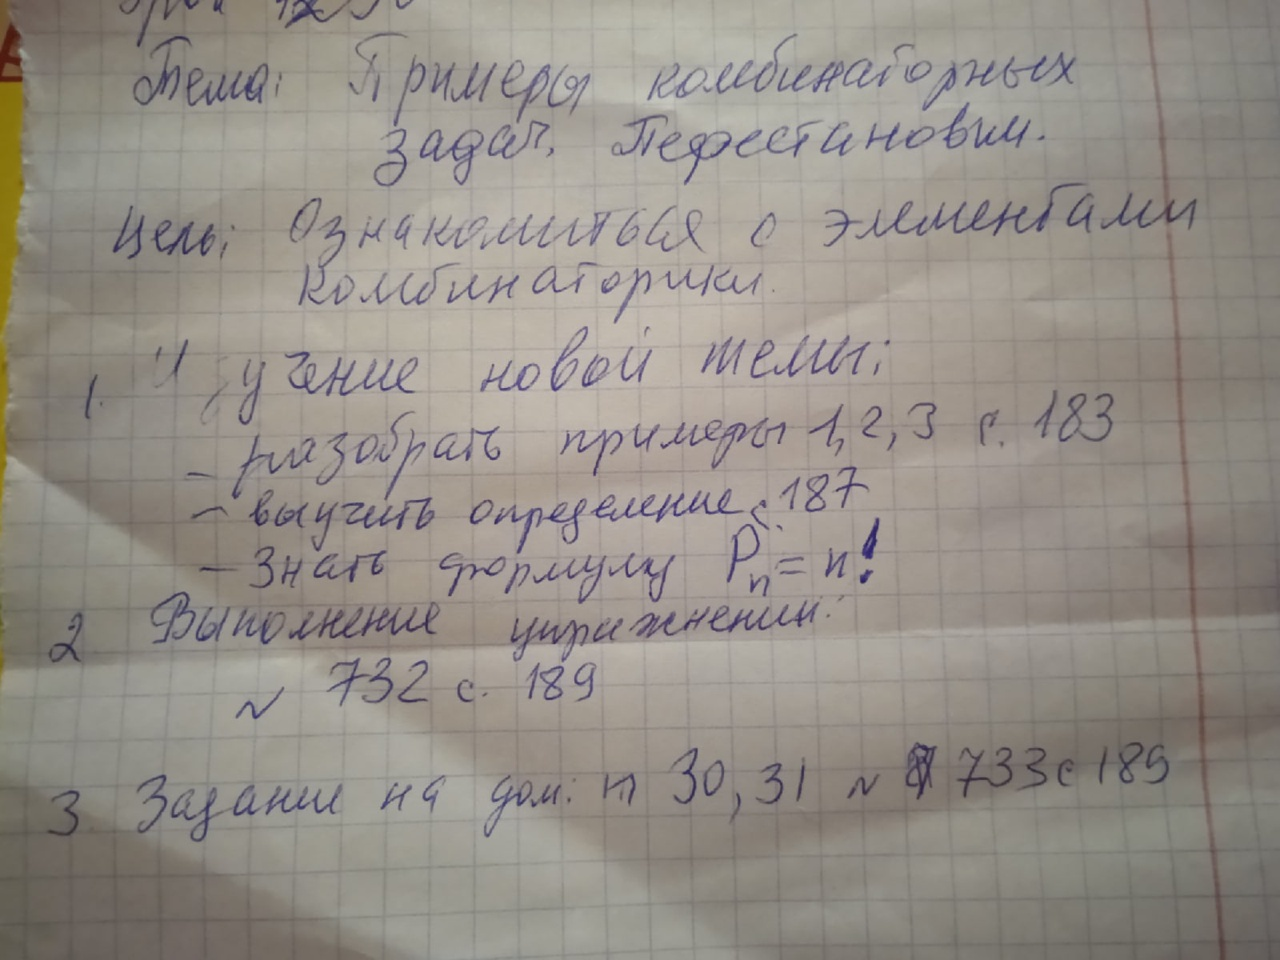 Тема: Примеры комбинаторных
задач. Перестановки.
Цель: Ознакомиться с элементами
комбинаторики.
1. Изучение новой темы:
- разобрать примеры 1, 2, 3 с. 183
- выучить определение с 187
- Знать формулу Pn = n!
2 Выполнение упражнений:
~ 732 с. 189
3 Задание на дом: п 30, 31 ~ 733 с 189